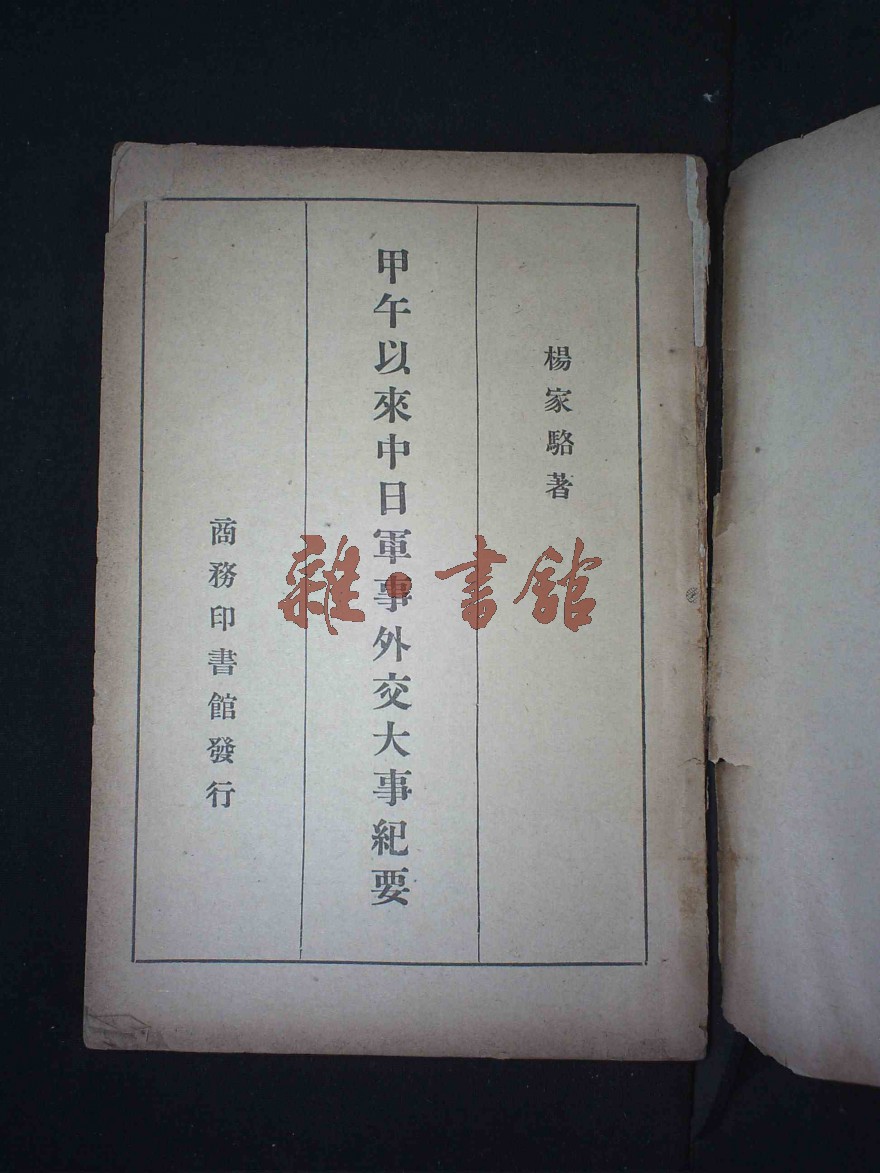 楊家駱著
甲午以來中日軍事外交大事紀要
商務印書館發行
雜·書館